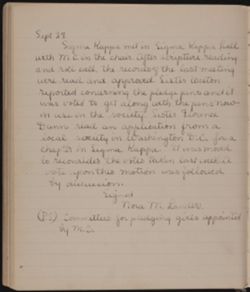 Sept 29
Sigma Kappa met in Sigma Kappa hall
with M.C. in the chair. After scripture reading
and role call, the records of the last meeting
were read and approved. Sister Weston
reported concerning the pledge pins and it
was voted to get along with the pins now
in use in the society. Sister Florence
Dunn read an application from a
local society in Washington D.C. for a
chapter in Sigma Kappa. It was moved
to reconsider the votes taken last week &
vote upon this motion was followed
by discussion.
Signed
Nora M. Lander
(P.S.) Committee for pledging girls appointed
by M.C.